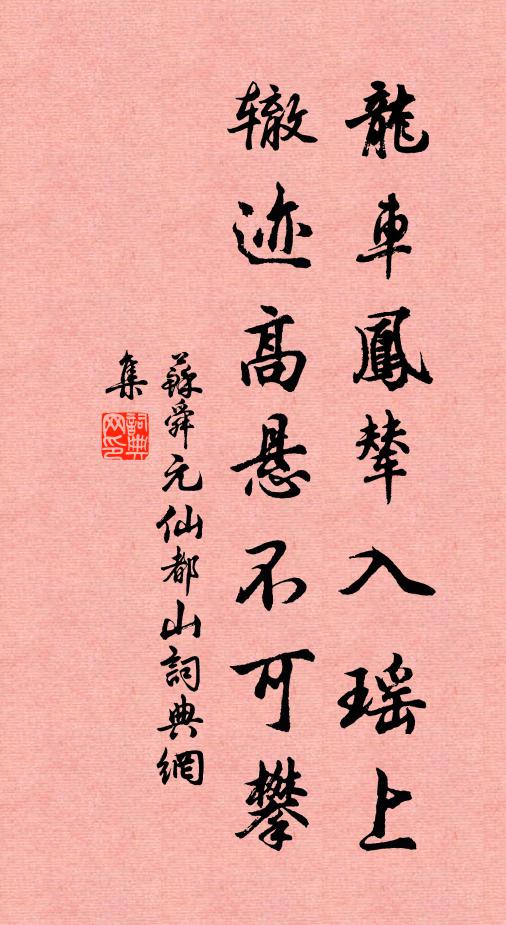 龍車鳳輦入瑶上
辙迹高悬不可攀
蘇舜元仙都山詞典網
集
詞典网印